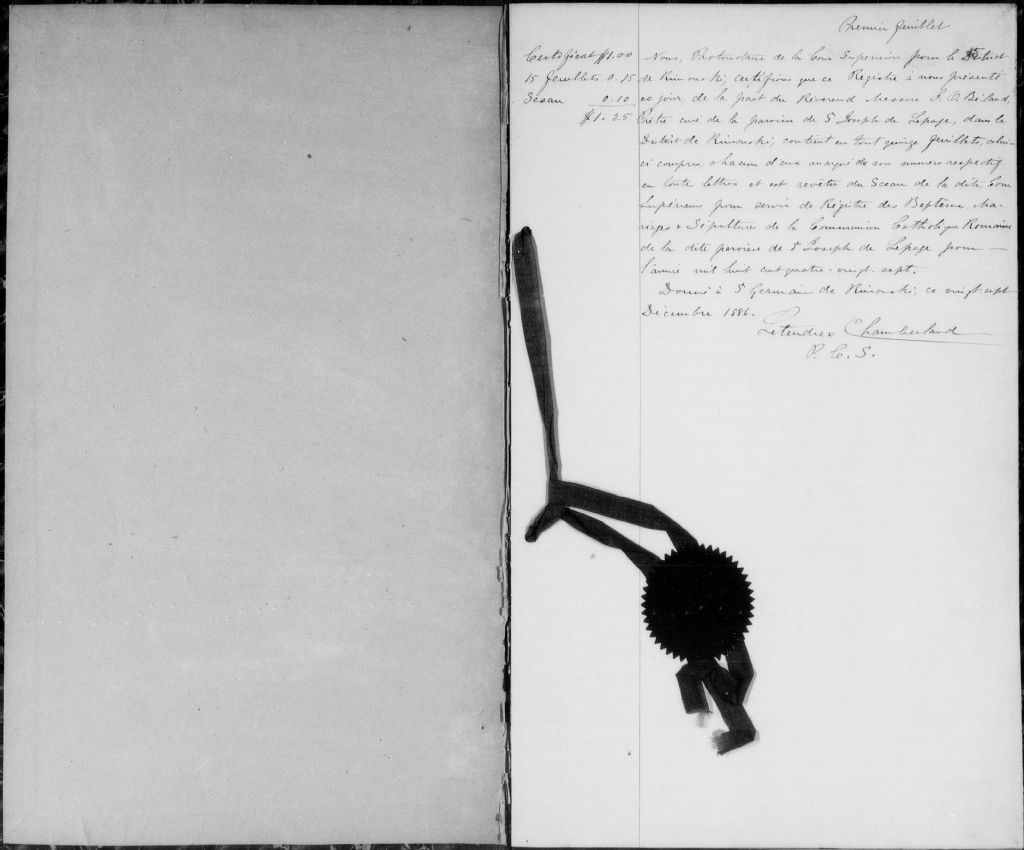 Premier feuillet
Certificat $1.00
15 feuillets 0.15
Sceau 0.10
$1.25
Nous, Protonotaire de la Cour Supérieure pour le District
de Rimouski, certifions que ce Registre à nous présenté
ce jour, de la part du Révérend Messire J. O. Béland,
Prêtre curé de la paroisse de St Joseph de Lepage, dans le
District de Rimouski, contient en tout quinze feuillets, celui-
ci compris, chacun d'eux marqué de son numéro respectif
en toute lettres et est revêtu du Sceau de la dite Cour
Supérieure pour servir de Régistre des Baptême, Ma-
riages & Sépulture de la Communion Catholique Romaine
de la dite paroisse de St Joseph de Lepage pour —
l'année mil huit cent quatre-vingt-sept.
Donné à St Germain de Rimouski, ce vingt-sept
Décembre 1886.
Letendre Chamberland
P. C. S.